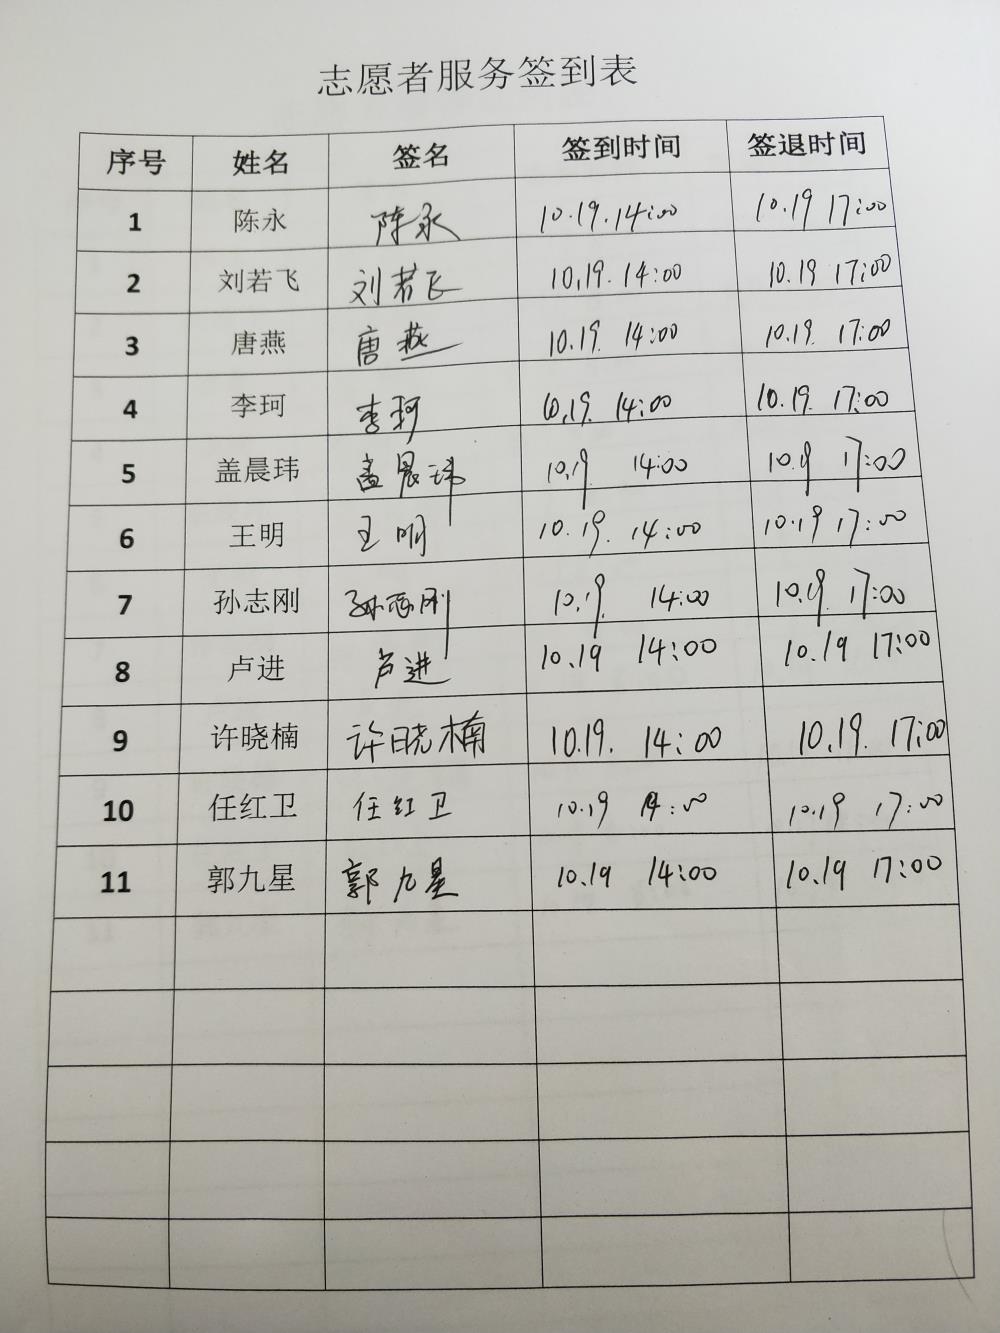 志愿者服务签到表
序号 姓名 签名 签到时间 签退时间
1 陈永 陈永 10.19.14:00 10.19 17:00
2 刘若飞 刘若飞 10.19. 14:00 10.19 17:00
3 唐燕 唐燕 10.19. 14:00 10.19. 17:00
4 李珂 李珂 10.19. 14:00 10.19. 17:00
5 盖晨玮 盖晨玮 10.19 14:00 10.19 17:00
6 王明 王明 10.19. 14:00 10.19 17:00
7 孙志刚 孙志刚 10.19. 14:00 10.19. 17:00
8 卢进 卢进 10.19 14:00 10.19 17:00
9 许晓楠 许晓楠 10.19. 14:00 10.19. 17:00
10 任红卫 任红卫 10.19 14:00 10.19 17:00
11 郭九星 郭九星 10.19 14:00 10.19 17:00